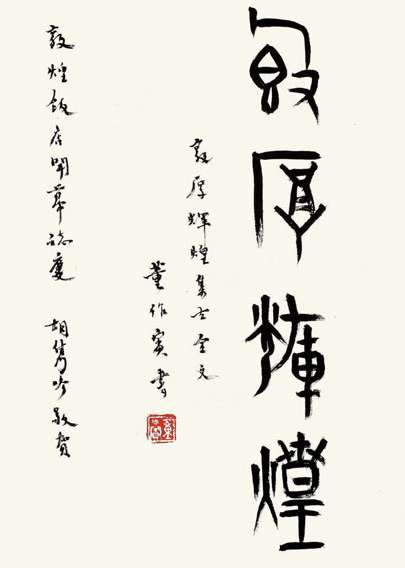 敦厚輝煌
敦厚輝煌集古金文
董作賓書
敦煌飯店開幕誌慶 胡雋吟敬賀